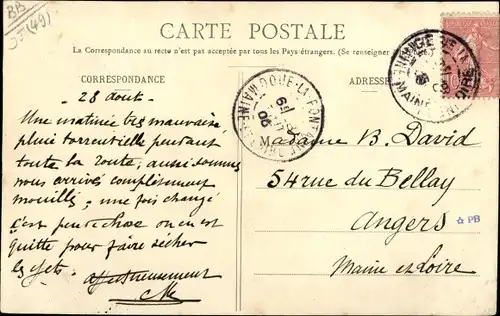 BB
CARTE POSTALE
La Correspondance au recto n'est pas acceptée par tous les Pays étrangers. (Se renseigner
CORRESPONDANCE
ADRESSE
28 Aout.
Une matinée très mauvaise
pluie torrentielle pendant
toute la route, aussi sommes
nous arrivés complètement
mouillés, une fois changé
c'est peu de chose on en est
quitte pour faire sécher
les
affectueusement
Madame B. David
54 rue du Bellay
Angers
Maine et Loire
DOUE-LA-FONTAINE
MAINE
06
MAINE ET LOIRE
☆ PB